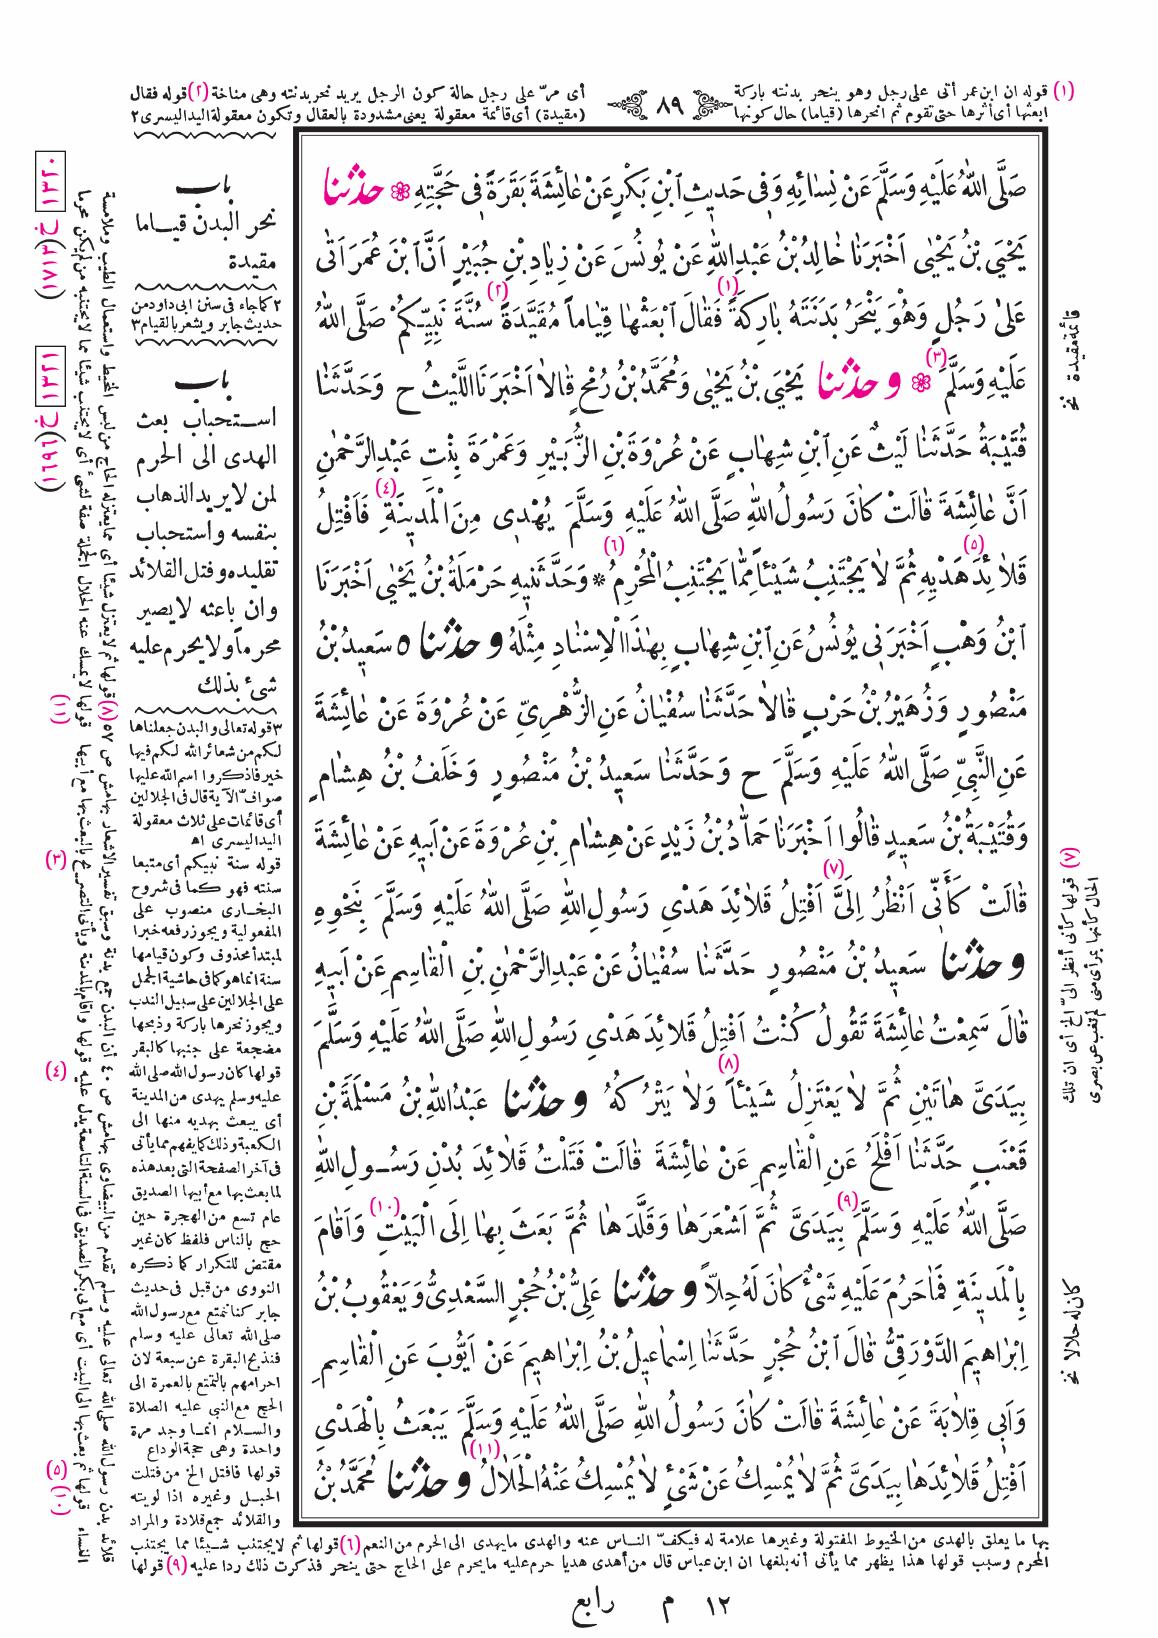 (١) قوله ان ابن عمر أتى على رجل وهو ينحر بدنته باركة
ابعثها أى أثرها حتى تقوم ثم انحرها (قياما) حال كونها
٨٩
أى مرّ على رجل حالة كون الرجل يريد نحر بدنته وهى مناخة (٢) قوله فقال
(مقيدة) أى قائمة معقولة يعنى مشدودة بالعقال وتكون معقولة اليد اليسرى ٢
صَلَّى اللهُ عَلَيْهِ وَسَلَّمَ عَنْ نِسَائِهِ وَفِى حَدِيثِ ابْنِ بَكْرٍ عَنْ عَائِشَةَ بَقَرَةً فِى حَجَّتِهِ ❁ حدثنا
يَحْيَى بْنُ يَحْيٰى اَخْبَرَنَا خَالِدُ بْنُ عَبْدِ اللهِ عَنْ يُونُسَ عَنْ زِيَادِ بْنِ جُبَيْرٍ اَنَّ ابْنَ عُمَرَ اَتٰى
عَلىٰ رَجُلٍ وَهُوَ يَنْحَرُ بَدَنَتَهُ بَارِكَةً (١) فَقَالَ ابْعَثْهَا قِيَاماً مُقَيَّدَةً (٢) سُنَّةَ نَبِيِّكُمْ صَلَّى اللهُ
عَلَيْهِ وَسَلَّمَ (٣) ❁ و حدثنا يَحْيَى بْنُ يَحْيٰى وَمُحَمَّدُ بْنُ رُمْحٍ قَالاَ اَخْبَرَنَا اللَّيْثُ ح وَحَدَّثَنَا
قُتَيْبَةُ حَدَّثَنَا لَيْثٌ عَنِ ابْنِ شِهَابٍ عَنْ عُرْوَةَ بْنِ الزُّبَيْرِ وَعَمْرَةَ بِنْتِ عَبْدِ الرَّحْمٰنِ
اَنَّ عَائِشَةَ قَالَتْ كَانَ رَسُولُ اللهِ صَلَّى اللهُ عَلَيْهِ وَسَلَّمَ يُهْدِى مِنَ الْمَدِينَةِ (٤) فَاَفْتِلُ
قَلاَئِدَ هَدْيِهِ (٥) ثُمَّ لاَ يَجْتَنِبُ شَيْئاً مِمَّا يَجْتَنِبُ الْمُحْرِمُ (٦) * وَحَدَّثَنِيهِ حَرْمَلَةُ بْنُ يَحْيٰى اَخْبَرَنَا
ابْنُ وَهْبٍ اَخْبَرَنِى يُونُسُ عَنِ ابْنِ شِهَابٍ بِهٰذَا الْاِسْنَادِ مِثْلَهُ و حدثناه سَعِيدُ بْنُ
مَنْصُورٍ وَزُهَيْرُ بْنُ حَرْبٍ قَالاَ حَدَّثَنَا سُفْيَانُ عَنِ الزُّهْرِىِّ عَنْ عُرْوَةَ عَنْ عَائِشَةَ
عَنِ النَّبِىِّ صَلَّى اللهُ عَلَيْهِ وَسَلَّمَ ح وَحَدَّثَنَا سَعِيدُ بْنُ مَنْصُورٍ وَخَلَفُ بْنُ هِشَامٍ
وَقُتَيْبَةُ بْنُ سَعِيدٍ قَالُوا اَخْبَرَنَا حَمَّادُ بْنُ زَيْدٍ عَنْ هِشَامِ بْنِ عُرْوَةَ عَنْ اَبِيهِ عَنْ عَائِشَةَ
قَالَتْ كَأَنِّى اَنْظُرُ اِلَىَّ (٧) اَفْتِلُ قَلاَئِدَ هَدْىِ رَسُولِ اللهِ صَلَّى اللهُ عَلَيْهِ وَسَلَّمَ بِنَحْوِهِ
و حدثنا سَعِيدُ بْنُ مَنْصُورٍ حَدَّثَنَا سُفْيَانُ عَنْ عَبْدِ الرَّحْمٰنِ بْنِ الْقَاسِمِ عَنْ اَبِيهِ
قَالَ سَمِعْتُ عَائِشَةَ تَقُولُ كُنْتُ اَفْتِلُ قَلاَئِدَ هَدْىِ رَسُولِ اللهِ صَلَّى اللهُ عَلَيْهِ وَسَلَّمَ
بِيَدَىَّ هَاتَيْنِ ثُمَّ لاَ يَعْتَزِلُ شَيْئاً (٨) وَلاَ يَتْرُكُهُ و حدثنا عَبْدُ اللهِ بْنُ مَسْلَمَةَ بْنِ
قَعْنَبٍ حَدَّثَنَا اَفْلَحُ عَنِ الْقَاسِمِ عَنْ عَائِشَةَ قَالَتْ فَتَلْتُ قَلاَئِدَ بُدْنِ رَسُولِ اللهِ
صَلَّى اللهُ عَلَيْهِ وَسَلَّمَ بِيَدَىَّ (٩) ثُمَّ اَشْعَرَهَا وَقَلَّدَهَا ثُمَّ بَعَثَ بِهَا اِلَى الْبَيْتِ (١٠) وَاَقَامَ
بِالْمَدِينَةِ فَمَا حَرُمَ عَلَيْهِ شَىْءٌ كَانَ لَهُ حِلاًّ و حدثنا عَلِىُّ بْنُ حُجْرٍ السَّعْدِىُّ وَيَعْقُوبُ بْنُ
اِبْرَاهِيمَ الدَّوْرَقِىُّ قَالَ ابْنُ حُجْرٍ حَدَّثَنَا اِسْمَاعِيلُ بْنُ اِبْرَاهِيمَ عَنْ اَيُّوبَ عَنِ الْقَاسِمِ
وَاَبِى قِلاَبَةَ عَنْ عَائِشَةَ قَالَتْ كَانَ رَسُولُ اللهِ صَلَّى اللهُ عَلَيْهِ وَسَلَّمَ يَبْعَثُ بِالْهَدْىِ
اَفْتِلُ قَلاَئِدَهَا بِيَدَىَّ ثُمَّ لاَ يُمْسِكُ عَنْ شَىْءٍ لاَ يُمْسِكُ عَنْهُ الْحَلاَلُ (١١) و حدثنا مُحَمَّدُ بْنُ
قائمة مقيدة نخ
(٧) قولها كأنى أنظر الىّ الخ أى ان تلك
الحال كأنها بمرأى منى لم تغب عن بصرى
كان له حلالا نخ
باب
نحر البدن قياما
مقيدة
٢ كما جاء فى سنن ابى داود من
حديث جابر ويشعر بالقيام ٣
باب
استحباب بعث
الهدى الى الحرم
لمن لا يريد الذهاب
بنفسه واستحباب
تقليده وفتل القلائد
وان باعثه لا يصير
محرماً ولا يحرم عليه
شىء بذلك
٣ قوله تعالى والبدن جعلناها
لكم من شعائر الله لكم فيها
خير فاذكروا اسم الله عليها
صوافّ الآية قال فى الجلالين
أى قائمات على ثلاث معقولة
اليد اليسرى اه
(٣) قوله سنة نبيكم أى متبعا
سنته فهو كما فى شروح
البخارى منصوب على
المفعولية ويجوز رفعه خبرا
لمبتدأ محذوف وكون قيامها
سنة انما هو كما فى حاشية الجمل
على الجلالين على سبيل الندب
ويجوز نحرها باركة وذبحها
مضجعة على جنبها كالبقر
(٤) قولها كان رسول الله صلى الله
عليه وسلم يهدى من المدينة
أى يبعث بهديه منها الى
الكعبة وذلك كما يفهم مما يأتى
فى آخر الصفحة التى بعد هذه
لما بعث بها مع أبيها الصديق
عام تسع من الهجرة حين
حج بالناس فلفظ كان غير
مقتض للتكرار كما ذكره
النووى من قبل فى حديث
جابر كنا نتمتع مع رسول الله
صلى الله تعالى عليه وسلم
فنذبح البقرة عن سبعة لان
احرامهم بالتمتع بالعمرة الى
الحج مع النبى عليه الصلاة
والسلام انما وجد مرة
واحدة وهى حجة الوداع
(٥) قولها فافتل الخ من فتلت
الحبل وغيره اذا لويته
والقلائد جمع قلادة والمراد
١٣٢٠ ح (١٧١٣)
١٣٢١ ح (١٦٩٦)
بها ما يعلق بالهدى من الخيوط المفتولة وغيرها علامة له فيكفّ الناس عنه والهدى مايهدى الى الحرم من النعم (٦) قولها ثم لايجتنب شيئا مما يجتنب
المحرم وسبب قولها هذا يظهر مما يأتى أنه بلغها ان ابن عباس قال من أهدى هديا حرم عليه مايحرم على الحاج حتى ينحر فذكرت ذلك ردا عليه (٩) قولها
١٢ م رابع